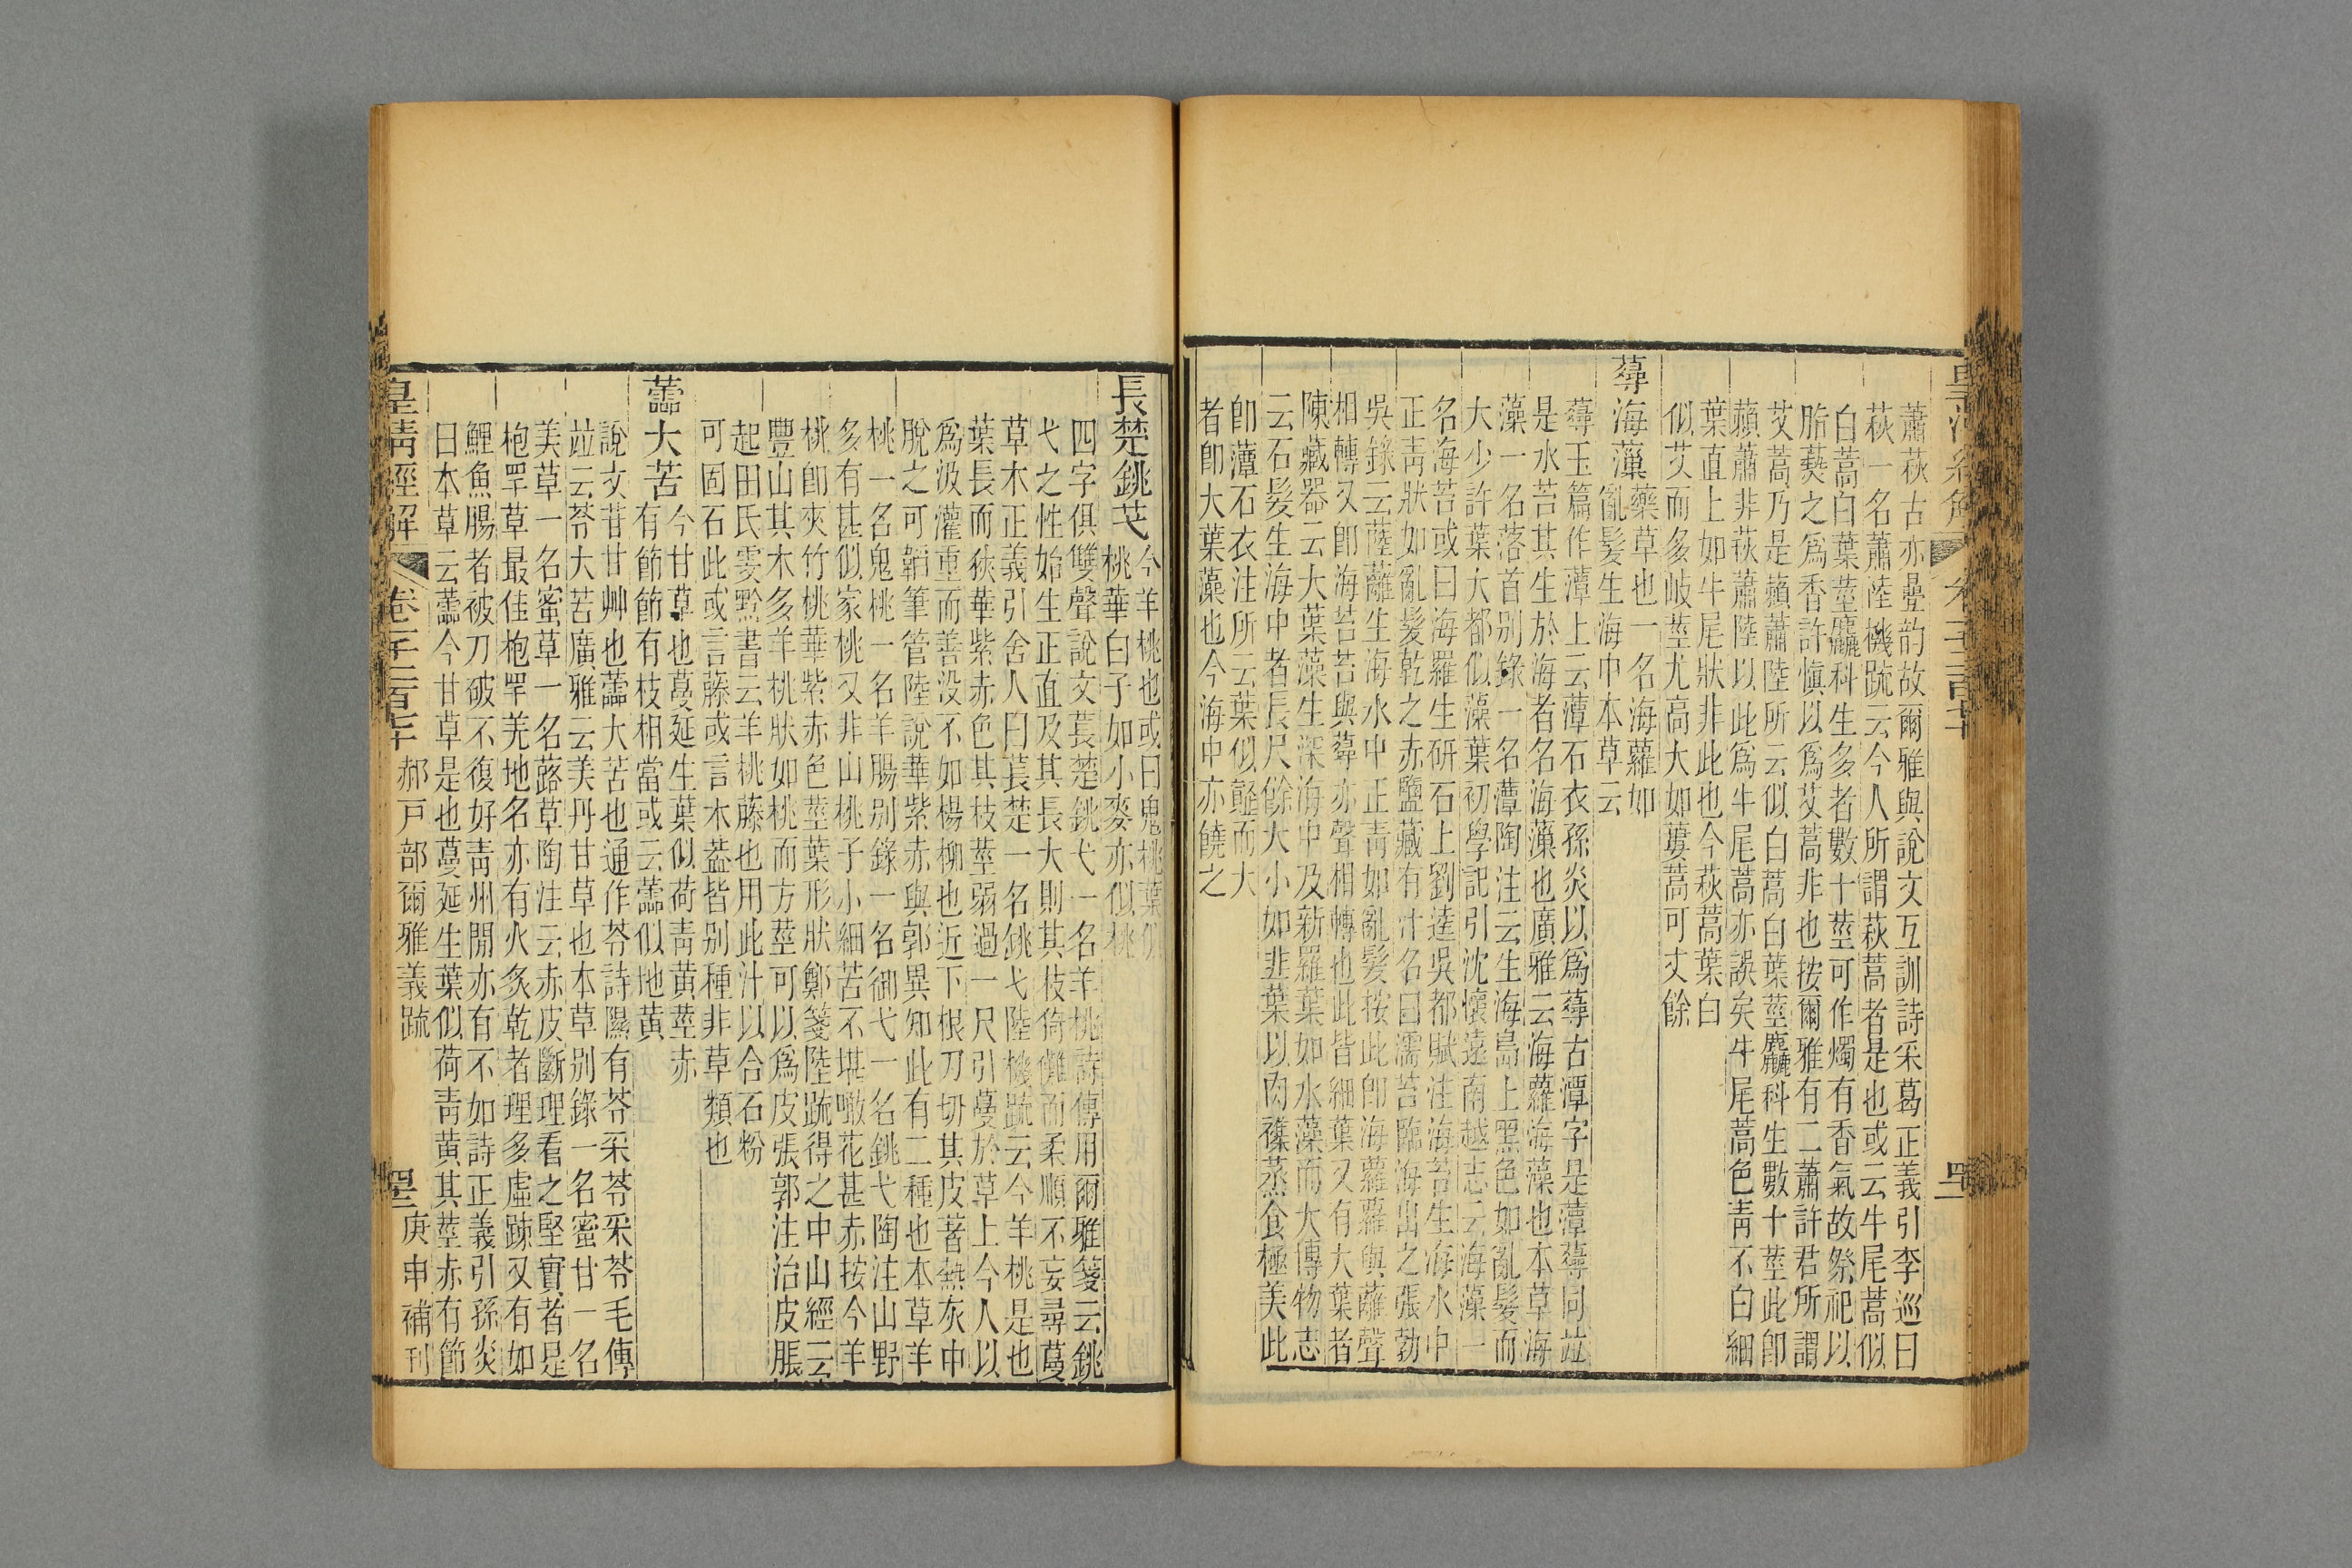 蕭萩古亦疊韵故爾雅與說文互訓詩采葛正義引李巡曰
萩一名蕭陸機疏云今人所謂萩蒿者是也或云牛尾蒿似
白蒿白葉莖麤科生多者數十莖可作燭有香氣故祭祀以
脂爇之爲香許愼以爲艾蒿非也按爾雅有二蕭許君所謂
艾蒿乃是藾蕭陸所云似白蒿白葉莖麤科生數十莖此卽
藾蕭非萩蕭陸以此爲牛尾蒿亦誤矣牛尾蒿色靑不白細
葉直上如牛尾狀非此也今萩蒿葉白
似艾而多岐莖尤高大如蔞蒿可丈餘
薚海薻藥草也一名海蘿如
亂髮生海中本草云
薚玉篇作藫上云藫石衣孫炎以爲薚古潭字是藫薚同竝
是水苔其生於海者名海薻也廣雅云海蘿海藻也本草海
藻一名落首别錄一名藫陶注云生海島上黑色如亂髮而
大少許葉大都似藻葉初學記引沈懷遠南越志云海藻一
名海苔或曰海羅生研石上劉逵吳都賦注海苔生海水中
正靑狀如亂髮乾之赤鹽藏有汁名曰濡苔臨海出之張勃
吳錄云薩蘺生海水中正靑如亂髮按此卽海蘿蘿與蘺聲
相轉又卽海苔苔與薚亦聲相轉也此皆細葉又有大葉者
陳藏器云大葉藻生深海中及新羅葉如水藻而大博物志
云石髮生海中者長尺餘大小如韭葉以肉襍蒸食極美此
卽藫石衣注所云葉似䪥而大
者卽大葉藻也今海中亦饒之
長楚銚芅今羊桃也或曰鬼桃葉似
桃華白子如小麥亦似桃
四字俱雙聲說文萇楚銚弋一名羊桃詩傳用爾雅箋云銚
弋之性始生正直及其長大則其枝倚儺而柔順不妄尋蔓
草木正義引舍人曰萇楚一名銚弋陸機疏云今羊桃是也
葉長而狹華紫赤色其枝莖弱過一尺引蔓於草上今人以
爲汲灌重而善没不如楊柳也近下根刀切其皮著熱灰中
脫之可韜筆管陸說華紫赤與郭異知此有二種也本草羊
桃一名鬼桃一名羊腸别錄一名御弋一名銚弋陶注山野
多有甚似家桃又非山桃子小細苦不堪噉花甚赤按今羊
桃卽夾竹桃華紫赤色莖葉形狀鄭箋陸疏得之中山經云
豐山其木多羊桃狀如桃而方莖可以爲皮張郭注治皮脹
起田氏雯黔書云羊桃藤也用此汁以合石粉
可固石此或言藤或言木葢皆别種非草類也
蘦大苦今甘草也蔓延生葉似荷靑黄莖赤
有節節有枝相當或云蘦似地黄
說文苷甘艸也蘦大苦也通作苓詩隰有苓采苓采苓毛傳
竝云苓大苦廣雅云美丹甘草也本草别錄一名蜜甘一名
美草一名蜜草一名蕗草陶注云赤皮斷理看之堅實者是
枹罕草最佳枹罕羌地名亦有火炙乾者理多虛疎又有如
鯉魚腸者被刀破不復好靑州閒亦有不如詩正義引孫炎
曰本草云蘦今甘草是也蔓延生葉似荷靑黄其莖赤有節
皇淸經解 卷一千二百七十 郝戸部爾雅義疏 庚申補刊